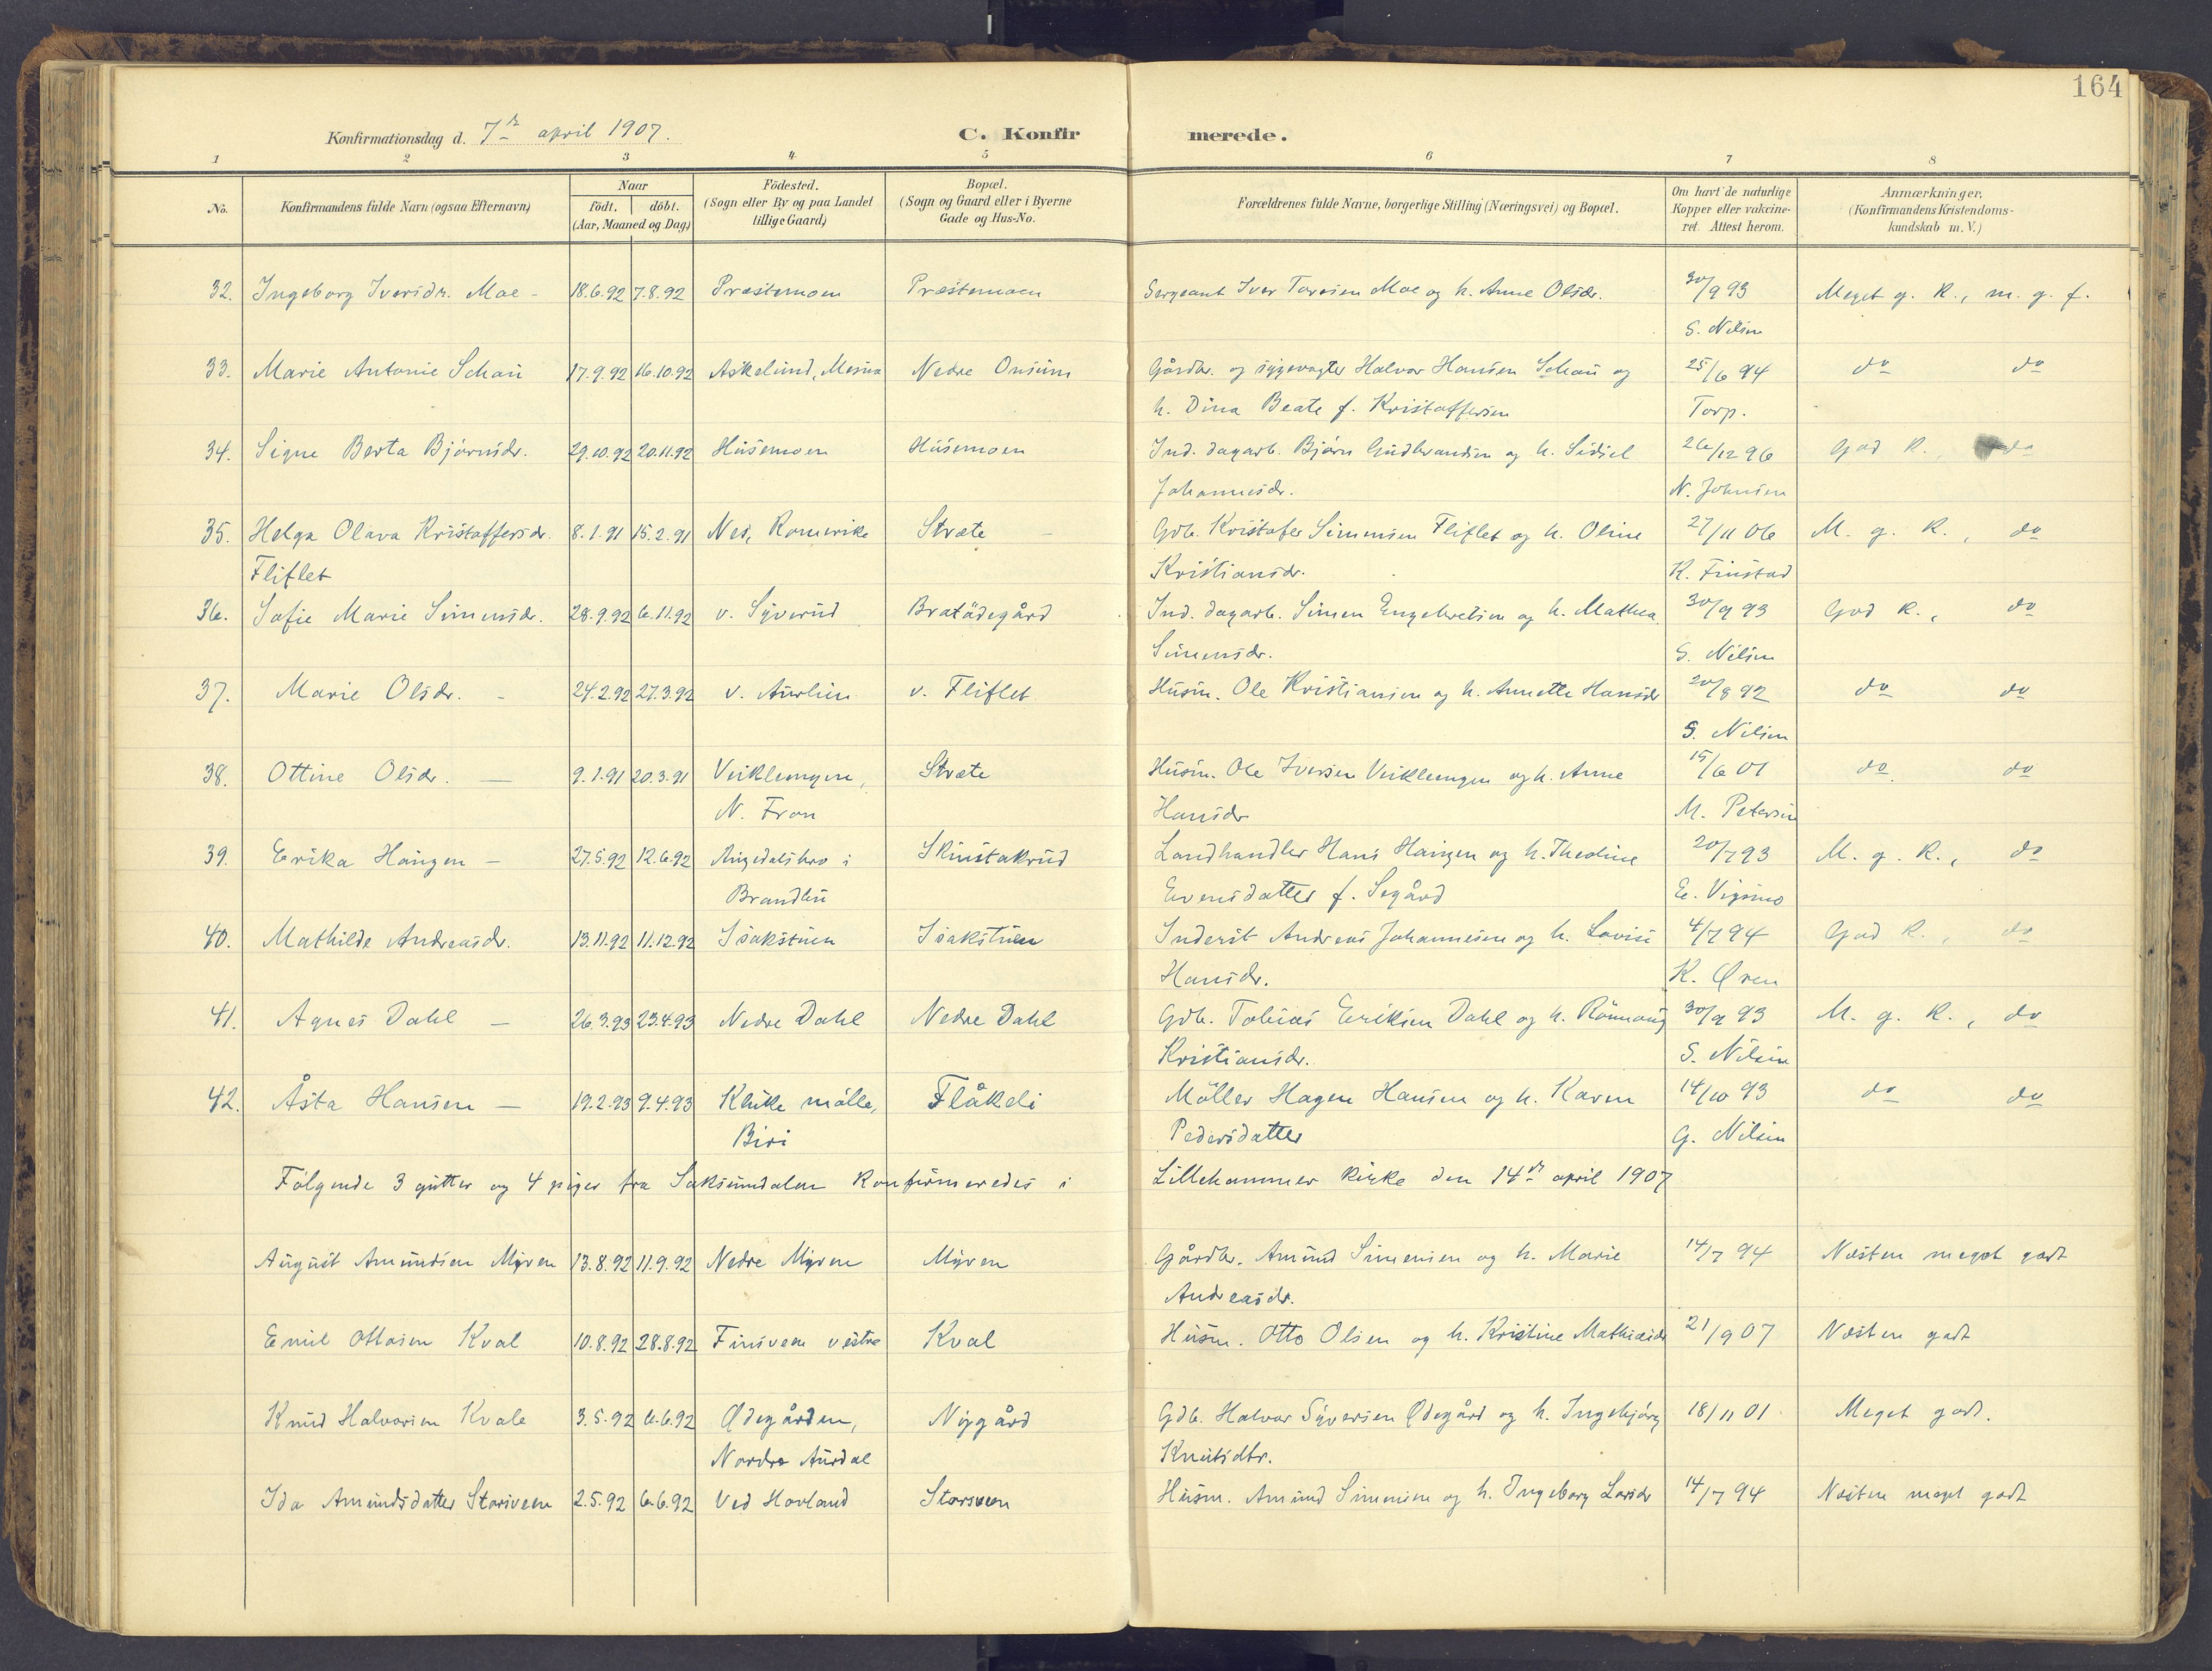 164
Konfirmationsdag d. 7de april 1907.
C. Konfirmerede.
1 2 3 4 5 6 7 8
No.
Konfirmandens fulde Navn (ogsaa Efternavn)
Naar
födt. döbt.
(Aar, Maaned og Dag)
Födested.
(Sogn eller By og paa Landet
tillige Gaard)
Bopæl.
(Sogn og Gaard eller i Byerne
Gade og Hus-No.
Forældrenes fulde Navne, borgerlige Stilling (Næringsvei) og Bopæl.
Om havt de naturlige
Kopper eller vakcine-
ret. Attest herom.
Anmærkninger.
(Konfirmandens Kristendoms-
kundskab m. V.)
32. Ingeborg Iversdr. Moe - 18.6.92 7.8.92 Præstemoen Præstemoen Sergeant Iver Moe og h. Anne Olsdr. 30/9 93 Meget g. K., m. g. f.
S. Nilsen
33. Marie Antonie Schau 17.9.92 16.10.92 Askelund, Mesna Nedre Onsum Gårdbr. og sygevogter Halvor Hansen Schau og 25/6 94 do do
h. Dina Beate f. Kristoffersen Torp.
34. Signe Berta Bjørnsdr. 29.10.92 20.11.92 Husemoen Husemoen Ind. dagarb. Bjørn Gudbrandsen og h. Sidsel 26/12 96 God K., do
Johannesdr. N. Johnsen
35. Helga Olava Kristoffersdr. 8.1.91 15.2.91 Nes, Romerike Stræte Gdb. Kristofer Simensen Fliflet og h. Oline 27/11 06 M. g. K., do
Fliflet Kristiansdr. K. Finstad
36. Sofie Marie Simensdr. 28.9.92 6.11.92 v. Syverud Bratødegård Ind. dagarb. Simen Engebretsen og h. Mathea 30/9 93 God K., do
Simensdr. S. Nilsen
37. Marie Olsdr. - 24.2.92 27.3.92 v. Aurlien v. Fliflet Husm. Ole Kristiansen og h. Annette Hansdr 20/8 92 do do
S. Nilsen
38. Ottine Olsdr. — 9.1.91 20.3.91 Veiklemyen, Stræte Husm. Ole Iversen Veiklemyen og h. Anne 15/6 01 do do
N. Fron Hansdr M. Petersen
39. Erika Haugen — 27.5.92 12.6.92 Augedalsbro i Skinstakrud Landhandler Hans Haugen og h. Theoline 20/7 93 M. g. K., do
Brandbu Evensdatter f. Segård E. Vigsmo
40. Mathilde Andreasdr. 13.11.92 11.12.92 Isakstuen Isakstuen Inderst Andreas Johannesen og h. Lovise 4/7 94 God K., do
Hansdr. K. Øren
41. Agnes Dahl — 26.3.93 23.4.93 Nedre Dahl Nedre Dahl Gdb. Tobias Eriksen Dahl og h. Rønnaug 30/9 93 M. g. K., do
Kristiansdr. S. Nilsen
42. Åsta Hansen — 19.2.93 9.4.93 Klukke mølle, Flåkeli Møller Hagen Hansen og h. Karen 14/10 93 do do
Biri Pedersdatter G. Nilsen
Følgende 3 gutter og 4 piger fra Saksumdalen konfirmeredes i Lillehammer kirke den 14de april 1907
August Amundsen Myren 13.8.92 11.9.92 Nedre Myren Myren Gårdbr. Amund Simensen og h. Marie 14/7 94 Næsten meget godt
Andreasdr.
Emil Ottosen Kval 10.8.92 28.8.92 Finsveen vestre Kval Husm. Otto Olsen og h. Kristine Mathiasdr 21/9 07 Næsten godt
Knud Halvorsen Kvale 3.5.92 6.6.92 Ødegården, Nygård Gdb. Halvor Syversen Ødegård og h. Ingebjørg 18/11 01 Meget godt.
Nordre Aurdal Knutsdtr.
Ida Amundsdatter Storsveen 2.5.92 6.6.92 Ved Hovland Storsveen Husm. Amund Simensen og h. Ingeborg Larsdr 14/7 94 Næsten meget godt